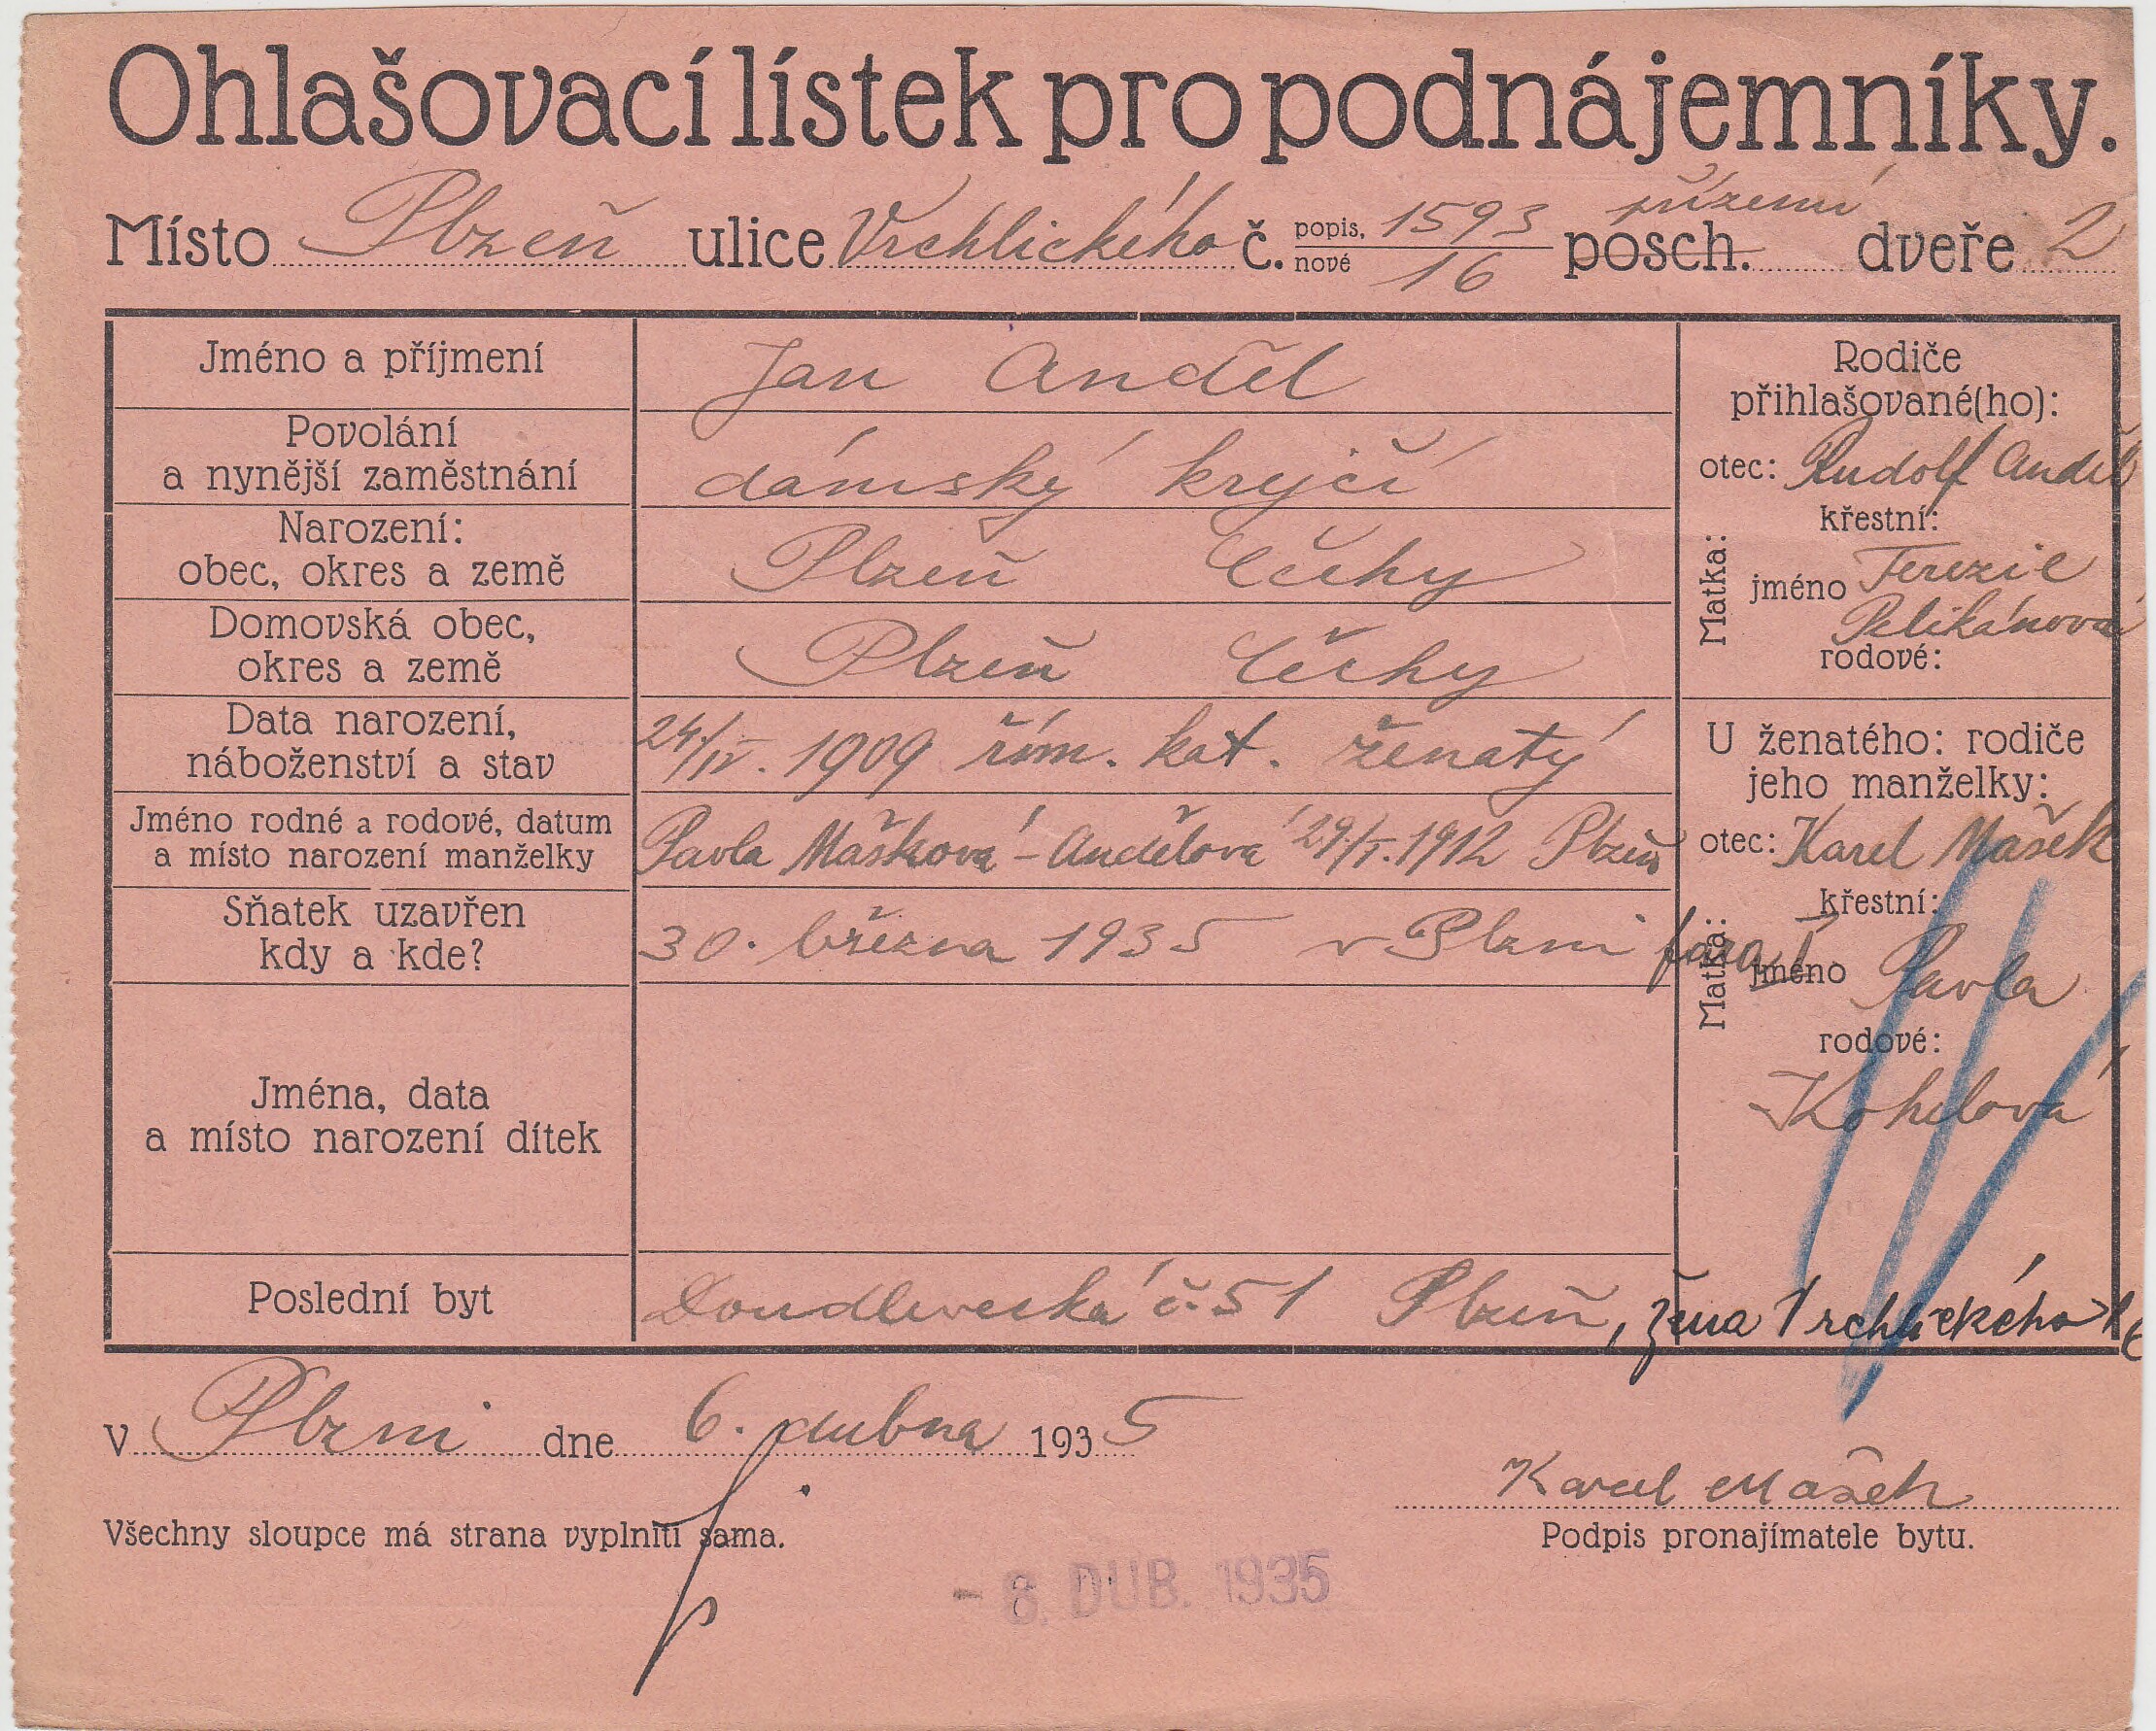 Ohlašovací lístek pro podnájemníky.
Místo Plzeň ulice Vrchlického č. popis. 1593 nové 16 přízemí posch. dveře 2
Jméno a příjmení
Jan Anděl
Povolání
a nynější zaměstnání
dámský krejčí
Narození:
obec, okres a země
Plzeň Čechy
Domovská obec,
okres a země
Plzeň Čechy
Data narození,
náboženství a stav
24/IV. 1909 řím. kat. ženatý
Jméno rodné a rodové, datum
a místo narození manželky
Pavla Mašková - Andělová 29/I. 1912 Plzeň
Sňatek uzavřen
kdy a kde?
30. března 1935 v Plzni fara
Jména, data
a místo narození dítek
Poslední byt
Doudlevecká č. 51 Plzeň, žena Vrchlického 16
Rodiče
přihlašované(ho):
otec: Rudolf Anděl
Matka:
křestní:
jméno Terezie
Pelikánová
rodové:
U ženatého: rodiče
jeho manželky:
otec: Karel Mašek
Matka:
křestní:
jméno Pavla
rodové:
Kohelová
v Plzni dne 6. dubna 1935
Karel Mašek
Všechny sloupce má strana vyplniti sama.
Podpis pronajímatele bytu.
- 8. DUB. 1935